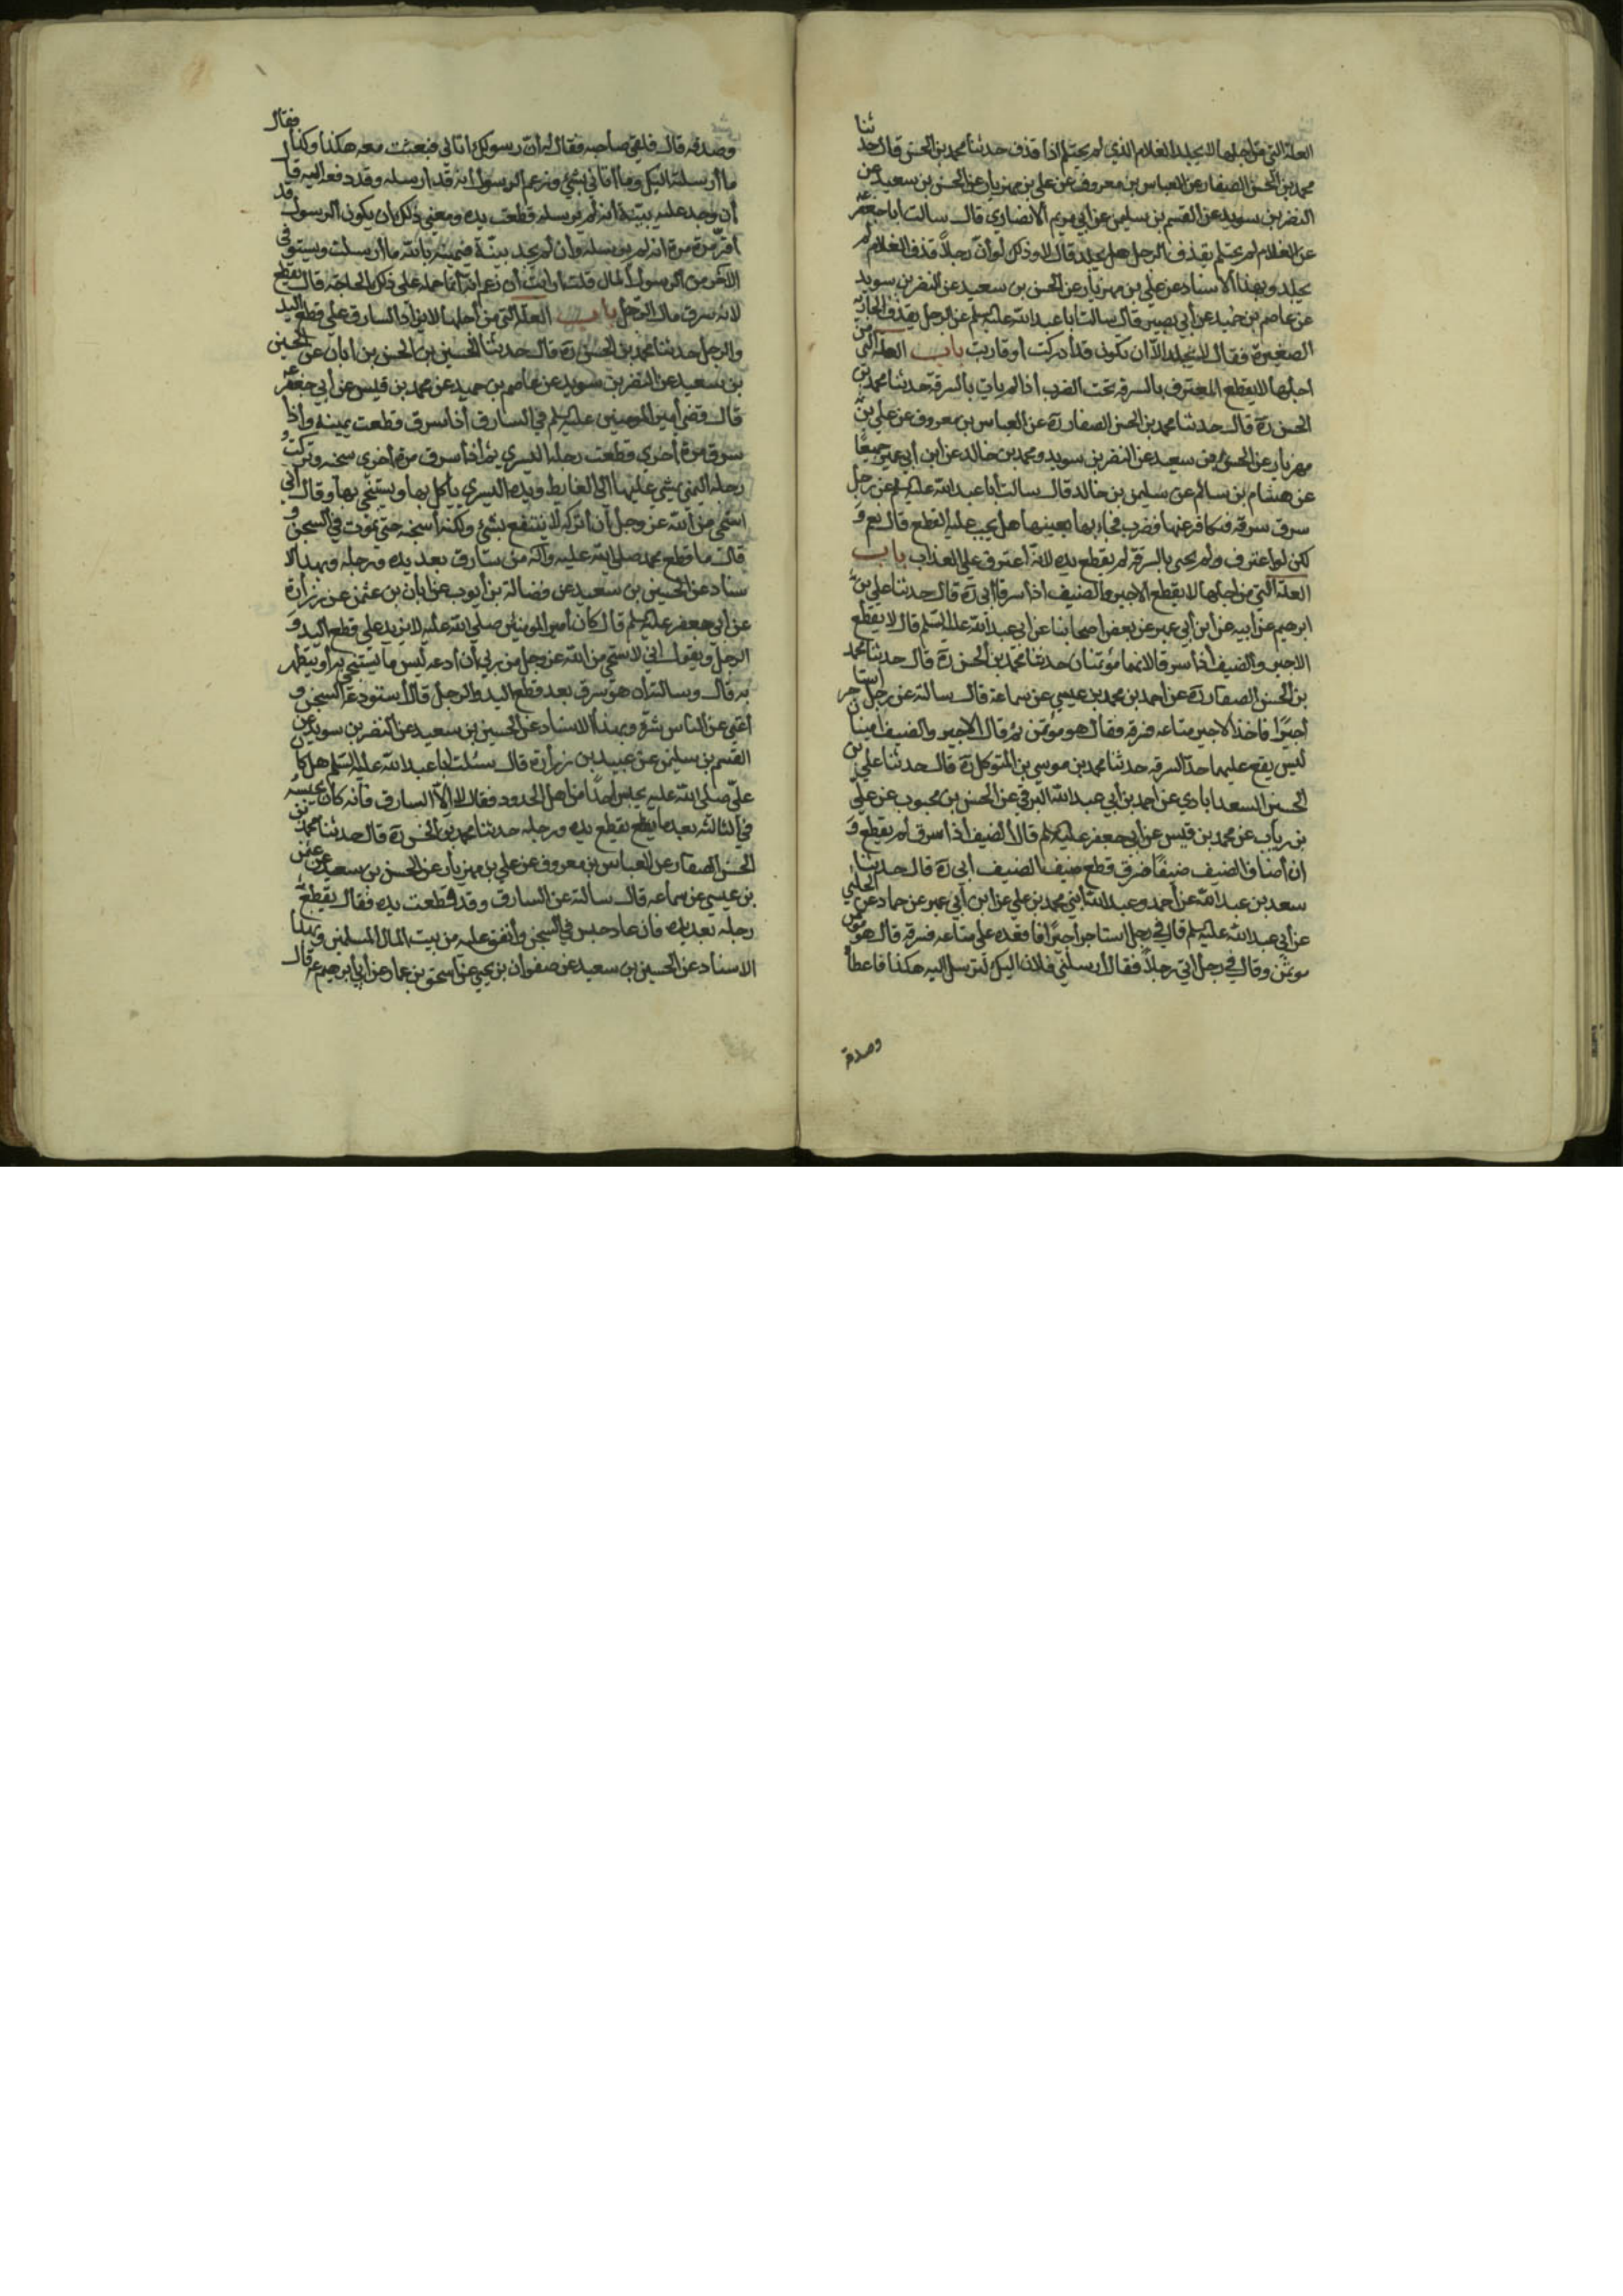 العلة التي من اجلها لا يجلد الغلام الذي لم يحتلم اذا قذف حدثنا محمد بن الحسن قال حدثنا
محمد بن الحسن الصفار عن العباس بن معروف عن علي بن مهزيار عن الحسن بن سعيد عن
النضر بن سويد عن القسم بن سليمن عن ابي مريم الانصاري قال سالت ابا جعفر ع
عن الغلام لم يحتلم يقذف الرجل هل يجلد قال لا وذلك لو ان رجلا قذف الغلام لم
يجلد وبهذا الاسناد عن علي بن مهزيار عن الحسن بن سعيد عن النضر بن سويد
عن عاصم بن حميد عن ابي بصير قال سالت ابا عبد الله عليه السلم عن الرجل يقذف الجارية
الصغيرة فقال لا يجلد الا ان تكون قد ادركت او قاربت باب العلة التي من
اجلها لا يقطع المعترف بالسرقة تحت الضرب اذا لم يات بالسرقة حدثنا محمد بن
الحسن ره قال حدثنا محمد بن الحسن الصفار ره عن العباس بن معروف عن علي بن
مهزيار عن الحسن بن سعيد عن النضر بن سويد ومحمد بن خالد عن ابن ابي عمير جميعا
عن هشام بن سالم عن سليمن بن خالد قال سالت ابا عبد الله عليه السلم عن رجل
سرق سرقة فكافر عنها فضرب فجاء بها بعينها هل يجب عليه القطع قال نعم و
لكن لو اعترف ولم يجئ بالسرقة لم يقطع يده لانه اعترف على العذاب باب
العلة التي من اجلها لا يقطع الاجير والضيف اذا سرقا ابي ره قال حدثنا علي بن
ابرهيم عن ابيه عن ابن ابي عمير عن بعض اصحابنا عن ابي عبد الله عليه السلم قال لا يقطع
الاجير والضيف اذا سرقا لانهما مؤتمنان حدثنا محمد بن الحسن ره قال حدثنا محمد
بن الحسن الصفار ره عن احمد بن محمد بن عيسي عن سماعة قال سالته عن رجل استاجر
اجيرا فاخذ الاجير متاعه فسرقه فقال هو مؤتمن ثم قال الاجير والضيف امينان
ليس يقع عليهما حد السرقه حدثنا محمد بن موسي بن المتوكل ره قال حدثنا علي بن
الحسين السعدابادي عن احمد بن ابي عبد الله البرقي عن الحسن بن محبوب عن علي
بن رياب عن محمد بن قيس عن ابي جعفر عليه السلم قال الضيف اذا سرق لم يقطع و
ان اضاف الضيف ضيفا فسرق قطع ضيف الضيف ابي ره قال حدثنا
سعد بن عبد الله عن احمد وعبد الله ابني محمد بن علي عن ابن ابي عمير عن حماد عن الحلبي
عن ابي عبد الله عليه السلم قال في رجل استاجر اجيرا فاقعده على متاعه فسرقه قال هو مؤتمن
مؤتمن وقال في رجل اتى رجلا فقال ارسلني فلان اليك لترسل اليه هكذا فاعطاه
وصدقه
وصدقه قال فلقي صاحبه فقال له ان رسولك اتاني فبعثت معه هكذا وكذا فقال
ما ارسلته اليك وما اتاني بشئ وزعم الرسول انه قد ارسله وقد دفعه اليه قال
ان وجد عليه بينة انه لم يرسله قطعت يده ومعنى ذلك ان يكون الرسول قد
اقر مرة مرة انه لم يرسله وان لم يجد بينة فيمينه بالله ما ارسلت ويستوفي
الاخر من الرسول المال قلت ارايت ان زعم انه انما حمله على ذلك الحاجة قال يقطع
لانه سرق مال الرجل باب العلة التي من اجلها لا يزاد السارق على قطع اليد
والرجل حدثنا محمد بن الحسن ره قال حدثنا الحسين بن الحسن بن ابان عن الحسين
بن سعيد عن النضر بن سويد عن عاصم بن حميد عن محمد بن قيس عن ابي جعفر ع
قال قضى امير المومنين عليه السلم في السارق اذا سرق قطعت يمينه واذا
سرق مرة اخري قطعت رجله اليسري ثم اذا سرق مرة اخري سجنه وتركت
رجله اليمنى يمشي عليها الى الغايط ويده اليسري ياكل بها ويستنجي بها وقال اني
استحي من الله عز وجل ان اتركه لا ينتفع بشئ ولكنه اسجنه حتى يموت في السجن و
قال ما قطع محمد صلى الله عليه وآله من سارق بعد يده ورجله وبهذا الا
سناد عن الحسين بن سعيد عن فضالة بن ايوب عن ابان بن عثمن عن زرارة
عن ابي جعفر عليه السلم قال كان امير المومنين صلى الله عليه لا يزيد على قطع اليد و
الرجل ويقول اني لاستحي من الله عز وجل من ربي ان ادعه ليس ما يستنجي به او يتطهر
به قال وسالته ان هو سرق بعد قطع اليد والرجل قال استودعه السجن و
اغني عن الناس شره وبهذا الاسناد عن الحسين بن سعيد عن النضر بن سويد عن
القسم بن سليمن عن عبيد بن زرارة قال سئلت ابا عبد الله عليه السلم هل كان
علي صلى الله عليه يحبس احدا من اهل الحدود فقال لا الا السارق فانه كان يحبسه
في الثالثة بعد ما يقطع يده ورجله حدثنا محمد بن الحسن ره قال حدثنا محمد بن
الحسن الصفار عن العباس بن معروف عن علي بن مهزيار عن الحسن بن سعيد عن عثمن
بن عيسي عن سماعة قال سالته عن السارق وقد قطعت يده فقال تقطع
رجله بعد يده فان عاد حبس في السجن وانفق عليه من بيت المال المسلمين وبهذا
الاسناد عن الحسين بن سعيد عن صفوان بن يحيي عن اسحق بن عمار عن ابي ابرهيم ع قال